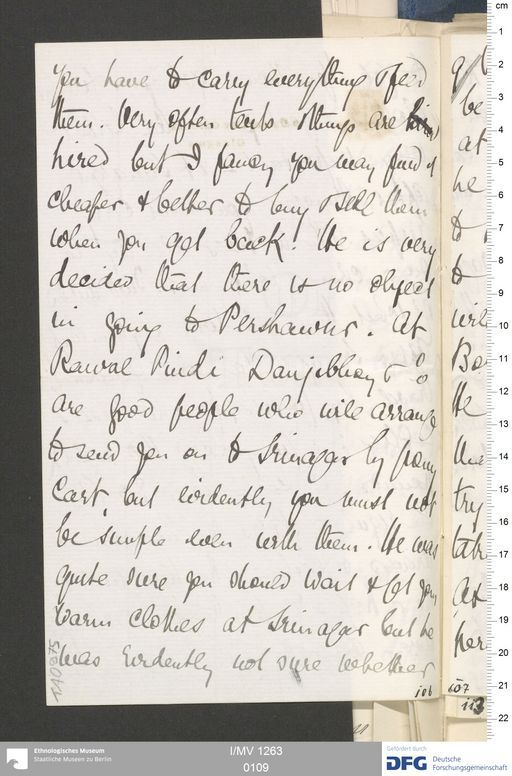 you have to carry everything & feed
them. Very often tents & things are
hired but I fancy you may find it
cheaper & better to buy & sell them
when you get back! He is very
decided that there is no object
in going to Pershawur. At
Rawal Pindi Danjibhoy & Co
are good people who will arrange
to send you on to Srinagar by pony
cart, but evidently you must not
be simple even with them. He was
quite sure you should wait & get your
warm clothes at Srinagar but he
was evidently not sure whether
106
107
113
be
at
he
to
to
He
try
At
cm
1
2
3
4
5
6
7
8
9
10
11
12
13
14
15
16
17
18
19
20
21
22
Ethnologisches Museum
Staatliche Museen zu Berlin
I/MV 1263
0109
Gefördert durch
DFG Deutsche
Forschungsgemeinschaft